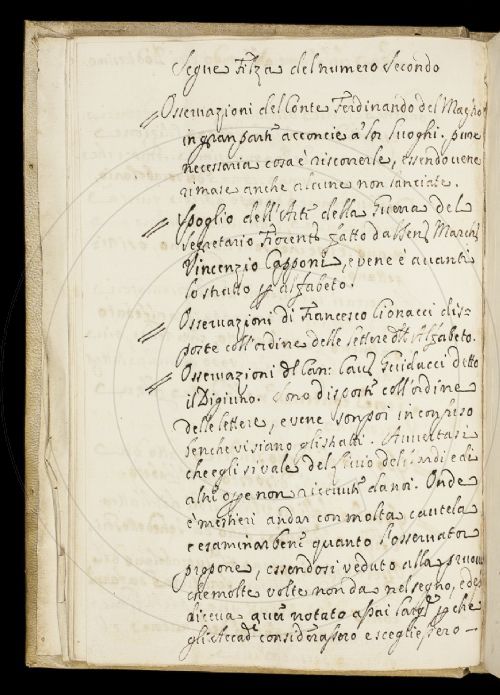 Segue Filza del numero secondo
Osservazioni del Conte Ferdinando del Maestro
in gran parte acconcie a' lor luoghi. pure
necessaria cosa è riscorrerle, essendovene
rimase anche alcune non lanciate.
Spoglio dell'Arte della Guerra del
Segretario Fiorent. fatto dal Sen. March.
Vincenzio Capponi, e vene è avanti
lo stratto p alfabeto.
Osservazioni di Francesco Cionacci dis=
poste coll'ordine delle lettere dell'Alfabeto.
Osservazioni del Can: Cav. Guiducci detto
il Digiuno. Sono disposte coll'ordine
delle lettere, e vene son poi in confuso
benche vi siano gli stratti. Avvertasi
che egli si vale del Livio del e di
altre ope non ricevute da noi. Onde
è mestieri andar con molta cautela
e esaminar bene quanto l'osservator
propone, essendosi veduto alla pruova
che molte volte non da nel segno, e de
diceva aver notato assai largo p che
gli Accad. considerassero e scegliessero –